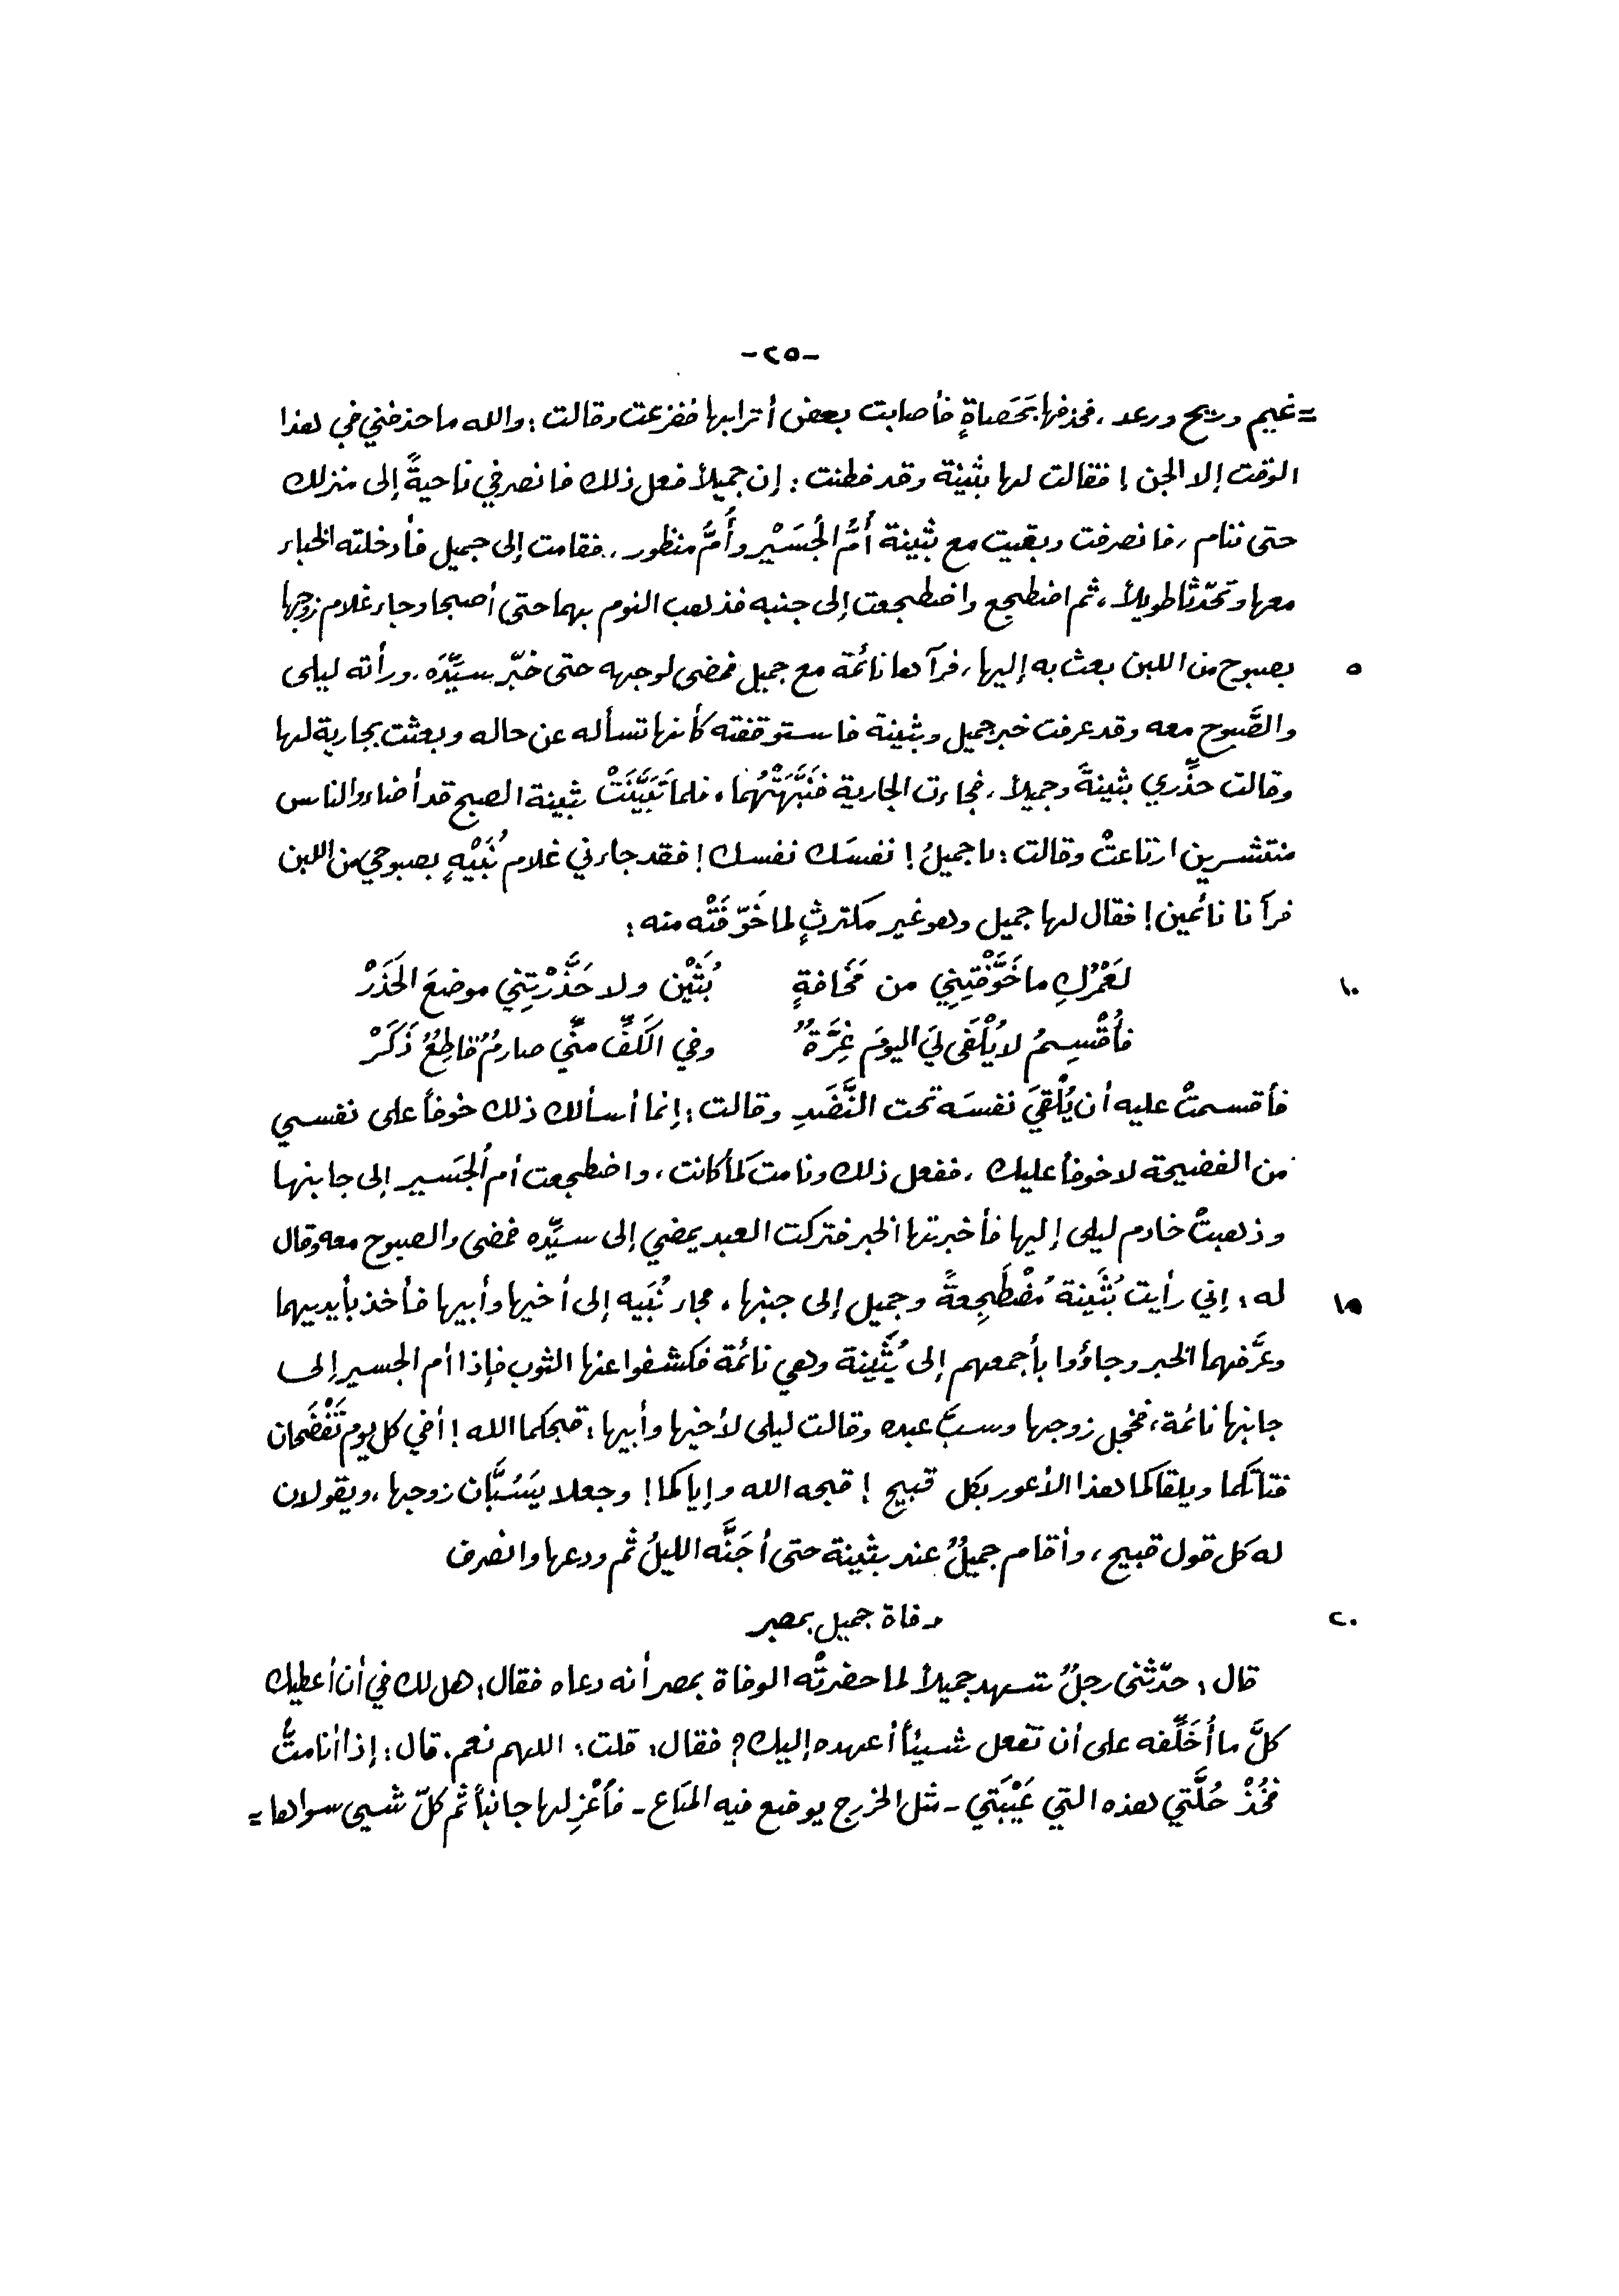 -٢٥-
= غيم وريح ورعد، فحذفها بَحَصاةٍ فأصابت بعض أترابها ففزعت وقالت: والله ما حذفني في هذا
الوقت إلا الجن! فقالت لها بثينة وقد فطنت: إن جميلاً فعل ذلك فانصرفي ناحيةً إلى منزلك
حتى ننام، فانصرفت وبقيت مع بثينة أمُّ الجُسَيْر وأُمُّ منظور، فقامت إلى جميل فأدخلته الخباء
معها وتحدّثا طويلاً، ثم اضطجع واضطجعت إلى جنبه فذهب النوم بهما حتى أصبحا وجاء غلام زوجها
٥ بصبوح من اللبن بعث به إليها، فرآها نائمة مع جميل فمضى لوجهه حتى خبّر سيّدَه، ورأته ليلى
والصَّبوح معه وقد عرفت خبر جميل وبثينة فاستوقفته كأنها تسأله عن حاله وبعثت بجارية لها
وقالت حذِّري بثينةَ وجميلاً، فجاءت الجارية فَنَبَّهَتْهُما، فلما تَبَيَّنَتْ بثينة الصبح قد أضاء والناس
منتشرين ارتاعتْ وقالت: يا جميلُ! نفسَك نفسك! فقد جاءني غلام نُبَيْهٍ بصبوحي من اللبن
فرآنا نائمين! فقال لها جميل وهو غير مكترثٍ لما خَوّفَتْه منه:
١٠ لَعَمْرُكِ ما خَوَّفْتِنِي من مَخَافةٍ بُثَيْن ولا حَذَّرْتِنِي موضعَ الَحذَرْ
فأُقْسِمُ لا يُلْفَى ليَ اليومَ غِرَّةٌ وفي الكَفِّ منِّي صارمٌ قاطِعٌ ذَكَرْ
فأقسمتْ عليه أن يُلْقيَ نفسَه تحت النَّضَدِ وقالت: إنما أسألك ذلك خوفاً على نفسي
من الفضيحة لا خوفاً عليك، ففعل ذلك ونامت كما كانت، واضطجعت أم الجُسَير إلى جانبها
وذهبتْ خادم ليلى إليها فأخبرتها الخبر فتركت العبد يمضي إلى سيِّده فمضى والصبوح معه وقال
١٥ له: إني رأيت بُثَينة مُضْطَجِعةً وجميل إلى جنبها، فجاء نُبَيه إلى أخيها وأبيها فأخذ بأيديهما
وعَرَّفهما الخبر وجاؤوا بأجمعهم إلى بُثَينة وهي نائمة فكشفوا عنها الثوب فإذا أم الجسير إلى
جانبها نائمة، فخجل زوجها وسبَّ عبده وقالت ليلى لأخيها وأبيها: قبحكما الله! أفي كل يوم تَفْضَحان
فتاتكما ويلقاكما هذا الأعور بكل قبيح! قبحه الله وإياكما! وجعلا يَسُبَّان زوجها، ويقولان
له كل قول قبيح، وأقام جميلٌ عند بثينة حتى أجَنَّه الليلُ ثم ودعها وانصرف
٢٠ وفاة جميل بمصر
قال: حدّثني رجلٌ شهد جميلاً لما حضرتْه الوفاة بمصر أنه دعاه فقال: هل لك في أن أعطيك
كلَّ ما أُخَلِّفه على أن تفعل شيئاً أعهده إليك؟ فقال: قلت: اللهم نعم. قال: إذا أنا متُّ
فخُذْ حُلَّتي هذه التي عَيْبَتي - مثل الخرج يوضع فيه المتاع - فأعْزِلها جانباً ثم كلّ شيىء سواها =